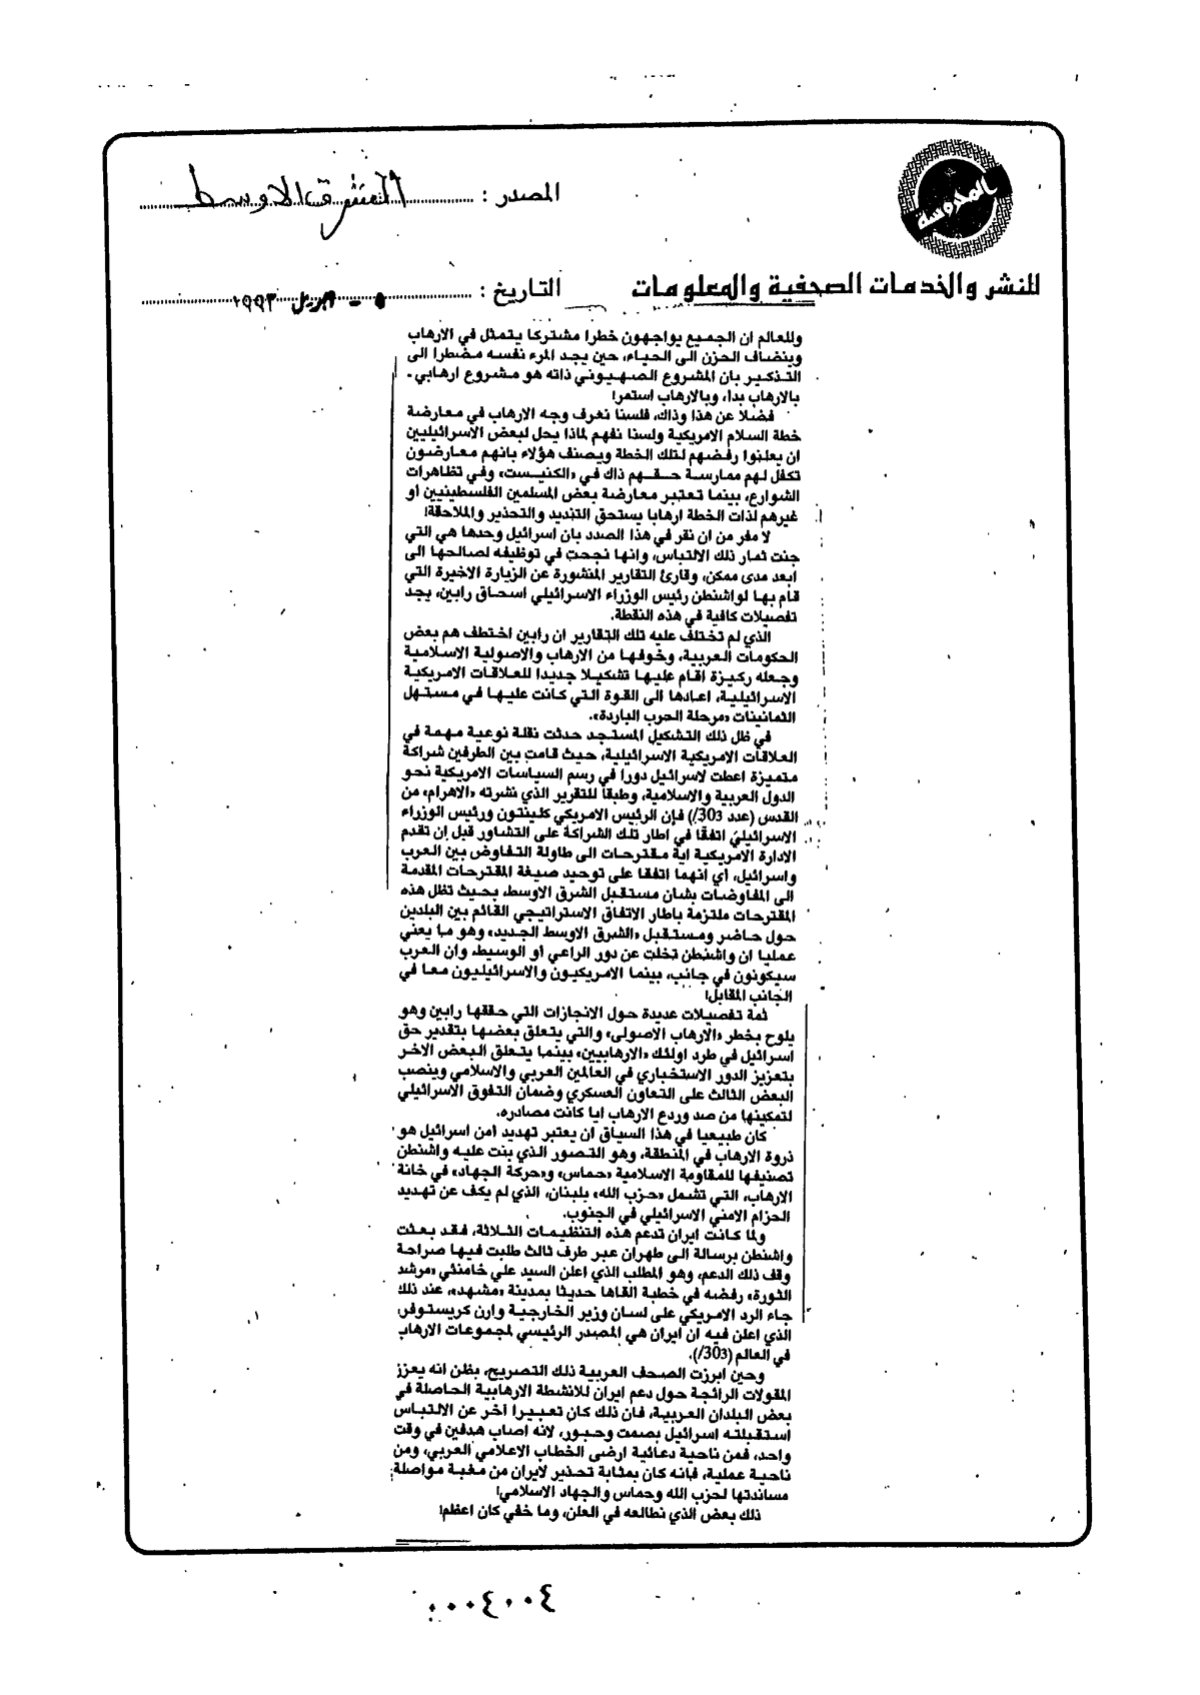 المدروسة
المصدر : الشرق الاوسط
للنشر والخدمات الصحفية والمعلومات
التاريخ : ٥ - ابريل ١٩٩٣
وللعالم ان الجميع يواجهون خطرا مشتركا يتمثل في الارهاب
وينضاف الحزن الى الحياء، حين يجد المرء نفسه مضطرا الى
التذكير بان المشروع الصهيوني ذاته هو مشروع ارهابي -
بالارهاب بدا، وبالارهاب استمر!
فضلا عن هذا وذاك، فلسنا نعرف وجه الارهاب في معارضة
خطة السلام الامريكية ولسنا نفهم لماذا يحل لبعض الاسرائيليين
ان يعلنوا رفضهم لتلك الخطة ويصنف هؤلاء بانهم معارضون
تكفل لهم ممارسة حقهم ذاك في «الكنيست» وفي تظاهرات
الشوارع، بينما تعتبر معارضة بعض المسلمين الفلسطينيين او
غيرهم لذات الخطة ارهابا يستحق التنديد والتحذير والملاحقة!
لا مفر من ان نقر في هذا الصدد بان اسرائيل وحدها هي التي
جنت ثمار ذلك الالتباس، وانها نجحت في توظيفه لصالحها الى
ابعد مدى ممكن، وقارئ التقارير المنشورة عن الزيارة الاخيرة التي
قام بها لواشنطن رئيس الوزراء الاسرائيلي اسحاق رابين، يجد
تفصيلات كافية في هذه النقطة.
الذي لم تختلف عليه تلك التقارير ان رابين اختطف هم بعض
الحكومات العربية، وخوفها من الارهاب والاصولية الاسلامية
وجعله ركيزة اقام عليها تشكيلا جديدا للعلاقات الامريكية
الاسرائيلية، اعادها الى القوة التي كانت عليها في مستهل
الثمانينات «مرحلة الحرب الباردة».
في ظل ذلك التشكيل المستجد حدثت نقلة نوعية مهمة في
العلاقات الامريكية الاسرائيلية، حيث قامت بين الطرفين شراكة
متميزة اعطت لاسرائيل دورا في رسم السياسات الامريكية نحو
الدول العربية والاسلامية، وطبقا للتقرير الذي نشرته «الاهرام» من
القدس (عدد 30/3) فإن الرئيس الامريكي كلينتون ورئيس الوزراء
الاسرائيلي اتفقا في اطار تلك الشراكة على التشاور قبل ان تقدم
الادارة الامريكية اية مقترحات الى طاولة التفاوض بين العرب
واسرائيل، أي انهما اتفقا على توحيد صيغة المقترحات المقدمة
الى المفاوضات بشان مستقبل الشرق الاوسط، بحيث تظل هذه
المقترحات ملتزمة باطار الاتفاق الاستراتيجي القائم بين البلدين
حول حاضر ومستقبل «الشرق الاوسط الجديد» وهو ما يعني
عمليا ان واشنطن تخلت عن دور الراعي أو الوسيط، وان العرب
سيكونون في جانب، بينما الامريكيون والاسرائيليون معا في
الجانب المقابل!
ثمة تفصيلات عديدة حول الانجازات التي حققها رابين وهو
يلوح بخطر «الارهاب الاصولى» والتي يتعلق بعضها بتقدير حق
اسرائيل في طرد اولئك «الارهابيين» بينما يتعلق البعض الاخر
بتعزيز الدور الاستخباري في العالمين العربي والاسلامي وينصب
البعض الثالث على التعاون العسكري وضمان التفوق الاسرائيلي
لتمكينها من صد وردع الارهاب ايا كانت مصادره.
كان طبيعيا في هذا السياق ان يعتبر تهديد أمن اسرائيل هو
ذروة الارهاب في المنطقة، وهو التصور الذي بنت عليه واشنطن
تصنيفها للمقاومة الاسلامية «حماس» و«حركة الجهاد» في خانة
الارهاب، التي تشمل «حزب الله» بلبنان، الذي لم يكف عن تهديد
الحزام الامني الاسرائيلي في الجنوب.
ولما كانت ايران تدعم هذه التنظيمات الثلاثة، فقد بعثت
واشنطن برسالة الى طهران عبر طرف ثالث طلبت فيها صراحة
وقف ذلك الدعم، وهو المطلب الذي اعلن السيد علي خامنئي «مرشد
الثورة» رفضه في خطبة القاها حديثا بمدينة «مشهد»، عند ذلك
جاء الرد الامريكي على لسان وزير الخارجية وارن كريستوفر،
الذي اعلن فيه ان ايران هي المصدر الرئيسي لمجموعات الارهاب
في العالم (30/3).
وحين ابرزت الصحف العربية ذلك التصريح، بظن انه يعزز
المقولات الرائجة حول دعم ايران للانشطة الارهابية الحاصلة في
بعض البلدان العربية، فان ذلك كان تعبيرا آخر عن الالتباس
استقبلته اسرائيل بصمت وحبور، لانه اصاب هدفين في وقت
واحد، فمن ناحية دعائية ارضى الخطاب الاعلامي العربي، ومن
ناحية عملية، فإنه كان بمثابة تحذير لايران من مغبة مواصلة
مساندتها لحزب الله وحماس والجهاد الاسلامي!
ذلك بعض الذي نطالعه في العلن، وما خفي كان اعظم!
٤٠٠٤٠٠٠